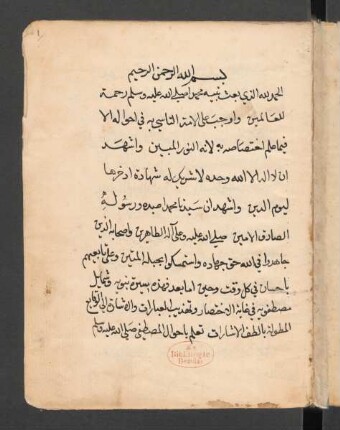 بسم الله الرحمن الرحيم
الحمد لله الذي بعث نبيه محمدا صلى الله عليه وسلم رحمة
للعالمين واوجب على الامة التاسي به في احواله الا
فيما علم اختصاصه به لانه النور المبين واشهد
ان لا اله الا الله وحده لا شريك له شهادة ادخرها
ليوم الدين واشهد ان سيدنا محمدا عبده ورسوله
الصادق الامين صلى الله عليه وعلى آله الطاهرين واصحابه الذين
جاهدوا في الله حق جهاده واستمسكوا بحبله المتين وعلى تابعيهم
باحسان في كل وقت وحين اما بعد فهذه سيرة نبوية وشمايل
مصطفويه في غاية الاختصار وتهذيب العبارات والاشارة الى الوقايع
المطولة بالطف الاشارات تعلم باحوال المصطفى صلى الله عليه وسلم